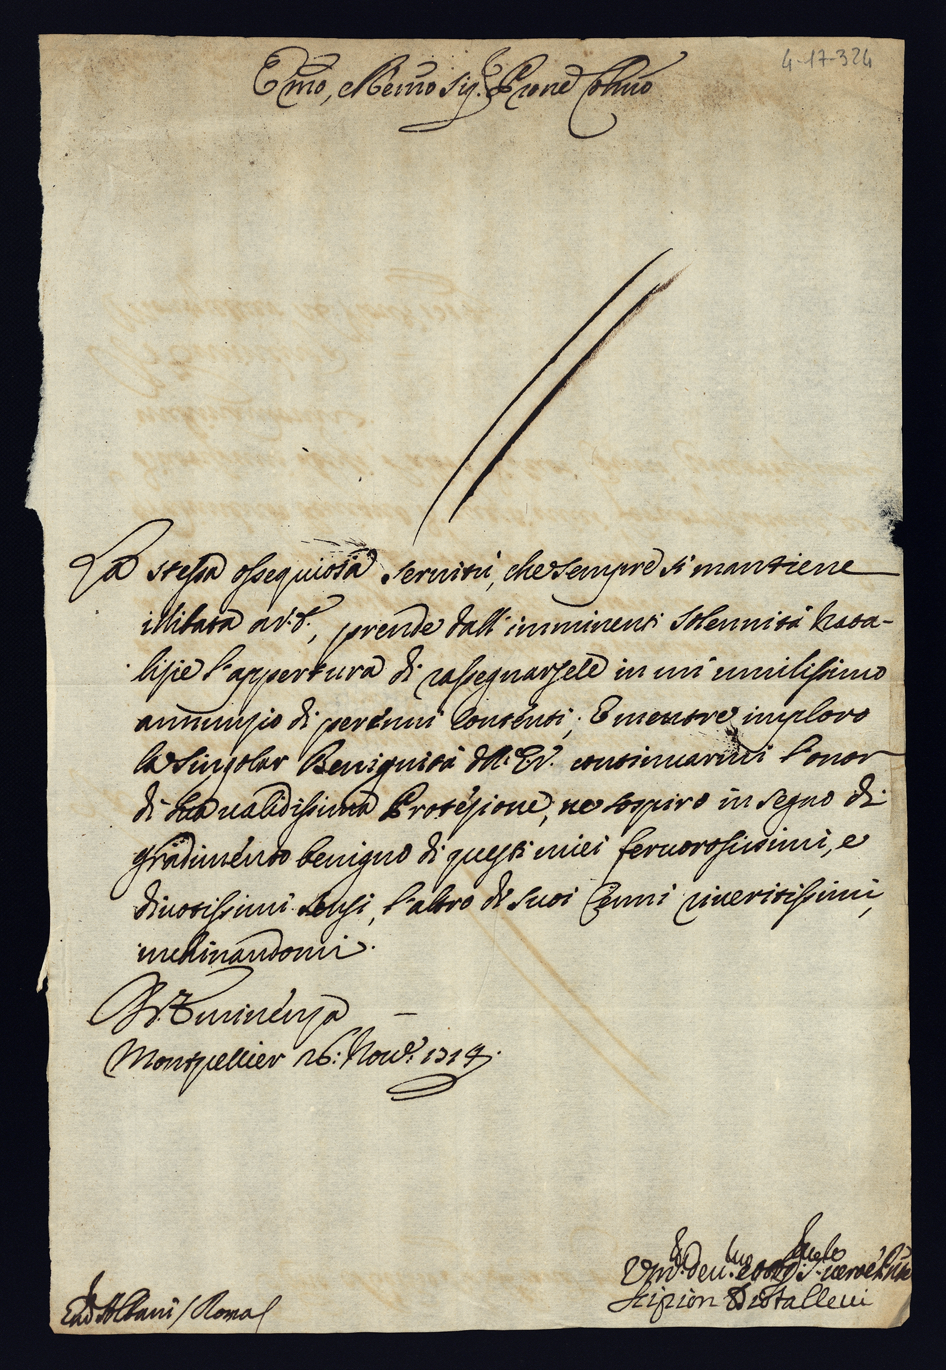 4-17-324
Emo, e Remo Sig.r Prone Colmo
La stessa ossequiosa servitù, che sempre si mantiene
illibata a V. E., prende dall' imminenti Solennità Nata-
lizie l'appertura di rassegnarsele in un umilissimo
annunzio di perenni contenti; E mentre imploro
la singolar Benignità dell' E. V. continuarmi l'onor
di sua validissima Protezione, ne sospiro in segno di
gradimento benigno di questi miei fervorosissimi, e
divotissimi sensi, l'altro di suoi Cenni riveritissimi,
inchinandomi.
Di V. Eminenza
Montpellier 26: Nov.e 1714.
Scipion
Albani / Roma